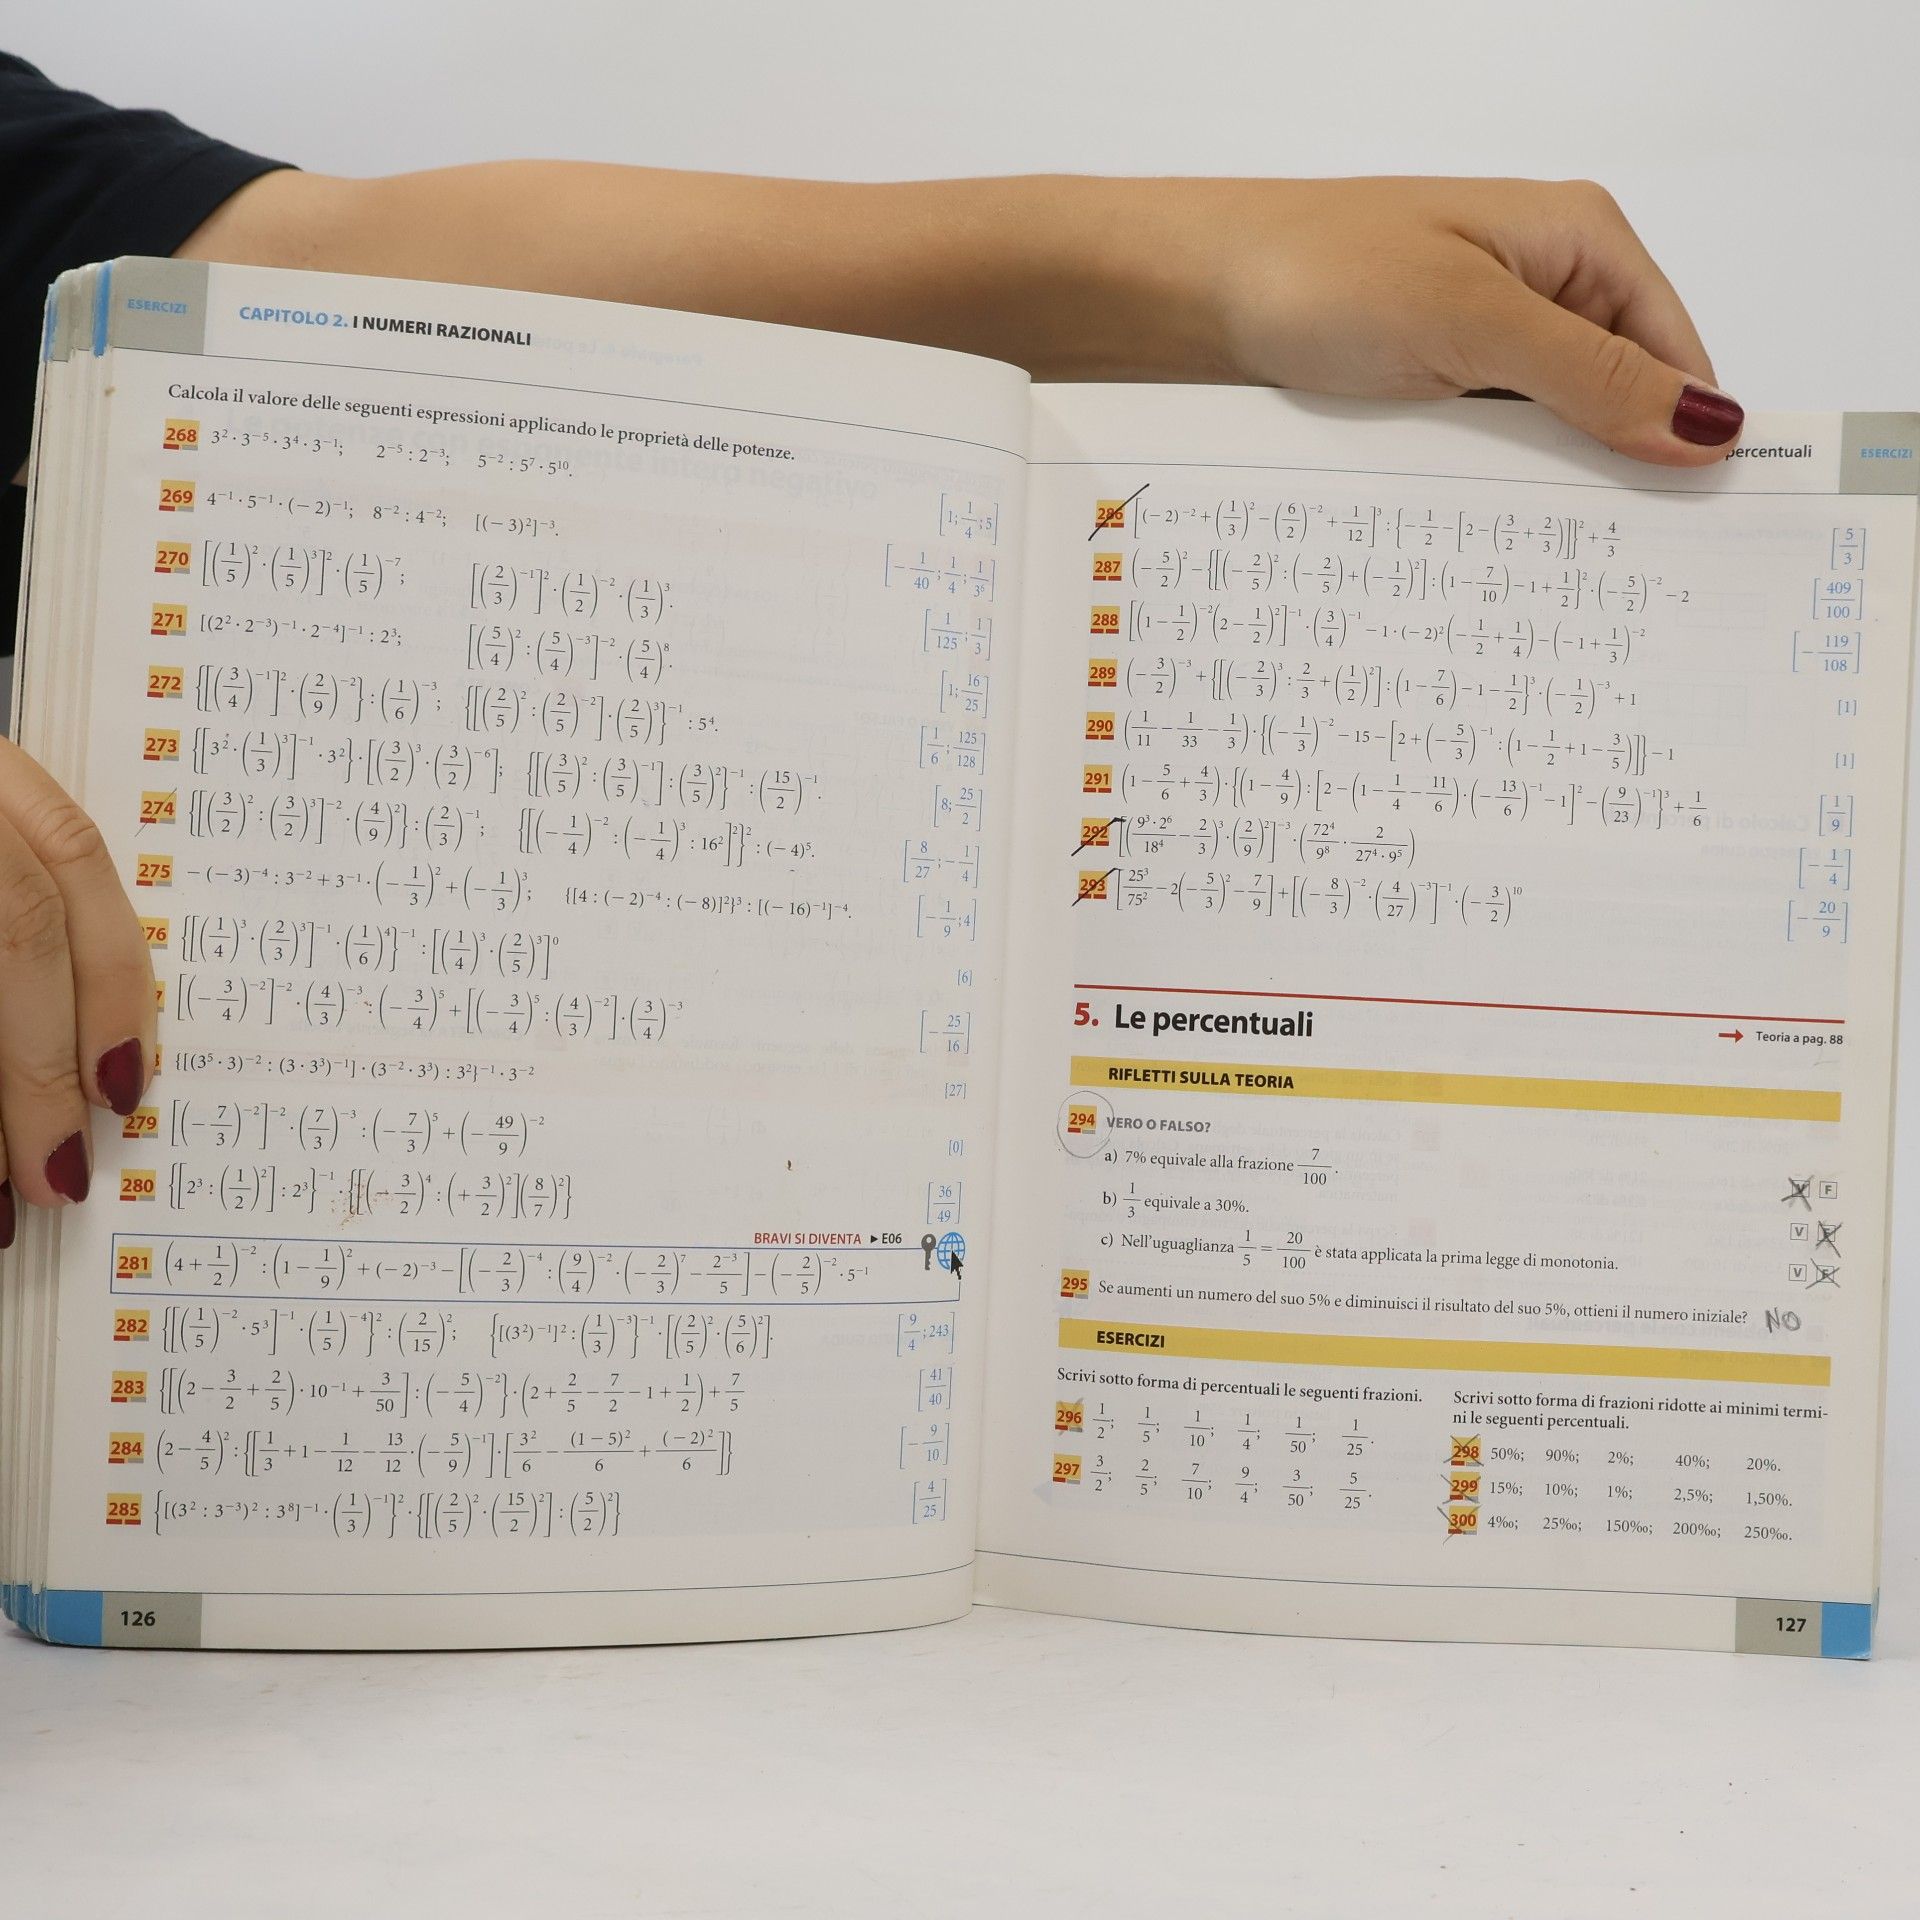 ESERCIZI
CAPITOLO 2. I NUMERI RAZIONALI
Calcola il valore delle seguenti espressioni applicando le proprietà delle potenze.
268 3² · 3⁻⁵ · 3⁴ · 3⁻¹; 2⁻⁵ : 2⁻³; 5⁻² : 5⁷ · 5¹⁰. [1; 1/4; 5]
269 4⁻¹ · 5⁻¹ · (− 2)⁻¹; 8⁻² : 4⁻²; [(− 3)²]⁻³. [− 1/40; 1/4; 1/3⁶]
270 [(1/5)² · (1/5)³]² · (1/5)⁻⁷; [(2/3)⁻¹]² · (1/2)⁻² · (1/3)³. [1/125; 1/3]
271 [(2² · 2⁻³)⁻¹ · 2⁻⁴]⁻¹ : 2³; [(5/4)² : (5/4)⁻³]⁻² · (5/4)⁸. [1; 16/25]
272 {[(3/4)⁻¹]² · (2/9)⁻²} : (1/6)⁻³; {[(2/5)² : (2/5)⁻²] · (2/5)³}⁻¹ : 5⁴. [1/6; 125/128]
273 {[3² · (1/3)³]⁻¹ · 3²} · [(3/2)³ · (3/2)⁻⁶]; {[(3/5)² : (3/5)⁻¹] : (3/5)²}⁻¹ : (15/2)⁻¹. [8; 25/2]
274 {[(3/2)² : (3/2)³]⁻² · (4/9)²} : (2/3)⁻¹; {[(− 1/4)⁻² : (− 1/4)³ : 16²]²}² : (− 4)⁵. [8/27; − 1/4]
275 − (− 3)⁻⁴ : 3⁻² + 3⁻¹ · (− 1/3)² + (− 1/3)³; {[4 : (− 2)⁻⁴ : (− 8)]²}³ : [(− 16)⁻¹]⁻⁴. [− 1/9; 4]
76 {[(1/4)³ · (2/3)³]⁻¹ · (1/6)⁴}⁻¹ : [(1/4)³ · (2/5)³]⁰ [6]
7 [(− 3/4)⁻²]⁻² · (4/3)⁻³ : (− 3/4)⁵ + [(− 3/4)⁵ : (4/3)⁻²] · (3/4)⁻³ [− 25/16]
{[(3⁵ · 3)⁻² : (3 · 3³)⁻¹] · (3⁻² · 3³) : 3²}⁻¹ · 3⁻² [27]
279 [(− 7/3)⁻²]⁻² · (7/3)⁻³ : (− 7/3)⁵ + (− 49/9)⁻² [0]
280 {[2³ : (1/2)²] : 2³}⁻¹ · {[(− 3/2)⁴ : (+ 3/2)²](8/7)²} [36/49]
BRAVI SI DIVENTA ▸ E06
281 (4 + 1/2)⁻² : (1 − 1/9)² + (− 2)⁻³ − [(− 2/3)⁻⁴ : (9/4)⁻² · (− 2/3)⁷ − 2⁻³/5] − (− 2/5)⁻² · 5⁻¹
282 {[(1/5)⁻² · 5³]⁻¹ · (1/5)⁻⁴}² : (2/15)²; {[(3²)⁻¹]² : (1/3)⁻³}⁻¹ · [(2/5)² · (5/6)²]. [9/4; 243]
283 {[(2 − 3/2 + 2/5) · 10⁻¹ + 3/50] : (− 5/4)⁻²} · (2 + 2/5 − 7/2 − 1 + 1/2) + 7/5 [41/40]
284 (2 − 4/5)² : {[1/3 + 1 − 1/12 − 13/12 · (− 5/9)⁻¹] · [3²/6 − (1 − 5)²/6 + (− 2)²/6]} [− 9/10]
285 {[(3² : 3⁻³)² : 3⁸]⁻¹ · (1/3)⁻¹}² · {[(2/5)² · (15/2)²] : (5/2)²} [4/25]
126
percentuali
ESERCIZI
286 [(− 2)⁻² + (1/3)² − (6/2)⁻² + 1/12]³ : {− 1/2 − [2 − (3/2 + 2/3)]}² + 4/3 [5/3]
287 (− 5/2)² − {[(− 2/5)² : (− 2/5) + (− 1/2)²] : (1 − 7/10) − 1 + 1/2}² · (− 5/2)⁻² − 2 [409/100]
288 [(1 − 1/2)⁻² (2 − 1/2)²]⁻¹ · (3/4)⁻¹ − 1 · (− 2)² (− 1/2 + 1/4) − (− 1 + 1/3)⁻² [− 119/108]
289 (− 3/2)⁻³ + {[(− 2/3)³ : 2/3 + (1/2)²] : (1 − 7/6) − 1 − 1/2}³ · (− 1/2)⁻³ + 1 [1]
290 (1/11 − 1/33 − 1/3) · {(− 1/3)⁻² − 15 − [2 + (− 5/3)⁻¹ : (1 − 1/2 + 1 − 3/5)]} − 1 [1]
291 (1 − 5/6 + 4/3) · {(1 − 4/9) : [2 − (1 − 1/4 − 11/6) · (− 13/6)⁻¹ − 1]² − (9/23)⁻¹}³ + 1/6 [1/9]
292 [(9³ · 2⁶/18⁴ − 2/3)³ · (2/9)²]⁻³ · (72⁴/9⁸ · 2/27⁴ · 9⁵) [− 1/4]
293 [25³/75² − 2(− 5/3)² − 7/9] + [(− 8/3)⁻² · (4/27)⁻³]⁻¹ · (− 3/2)¹⁰ [− 20/9]
5. Le percentuali
→ Teoria a pag. 88
RIFLETTI SULLA TEORIA
294 VERO O FALSO?
a) 7% equivale alla frazione 7/100. V F
b) 1/3 equivale a 30%. V F
c) Nell'uguaglianza 1/5 = 20/100 è stata applicata la prima legge di monotonia. V F
295 Se aumenti un numero del suo 5% e diminuisci il risultato del suo 5%, ottieni il numero iniziale? NO
ESERCIZI
Scrivi sotto forma di percentuali le seguenti frazioni.
296 1/2; 1/5; 1/10; 1/4; 1/50; 1/25.
297 3/2; 2/5; 7/10; 9/4; 3/50; 5/25.
Scrivi sotto forma di frazioni ridotte ai minimi termi-
ni le seguenti percentuali.
298 50%; 90%; 2%; 40%; 20%.
299 15%; 10%; 1%; 2,5%; 1,50%.
300 4‰; 25‰; 150‰; 200‰; 250‰.
127